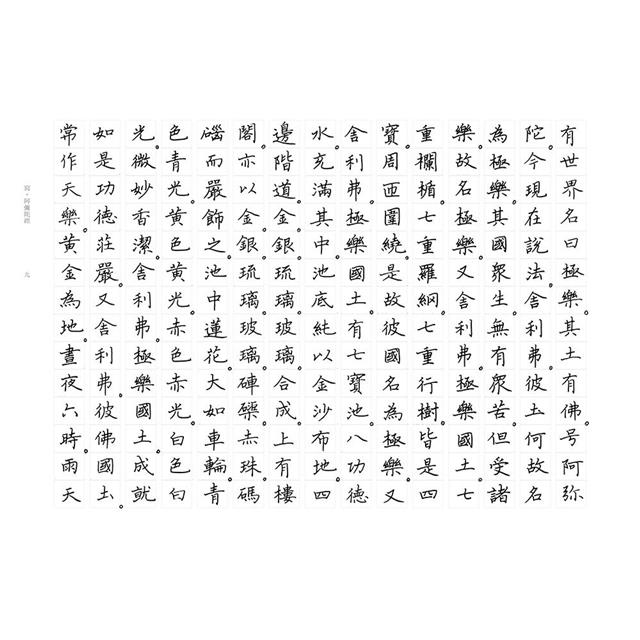 有世界名曰極樂。其土有佛。号阿弥
陀。今現在說法。舍利弗。彼土何故名
為極樂。其國眾生。無有眾苦。但受諸
樂。故名極樂。又舍利弗。極樂國土。七
重欄楯。七重羅網。七重行樹。皆是四
寶。周匝圍繞。是故彼國名為極樂。又
舍利弗。極樂國土。有七寶池。八功德
水。充滿其中。池底純以金沙布地。四
邊階道。金。銀。琉璃。玻璃。合成。上有樓
閣。亦以金。銀。琉璃。玻璃。硨磲。赤珠。碼
碯而嚴飾之。池中蓮花。大如車輪。青
色青光。黃色黃光。赤色赤光。白色白
光。微妙香潔。舍利弗。極樂國土。成就
如是功德莊嚴。又舍利弗。彼佛國土。
常作天樂。黃金為地。晝夜六時。雨天
寫・阿彌陀經
九